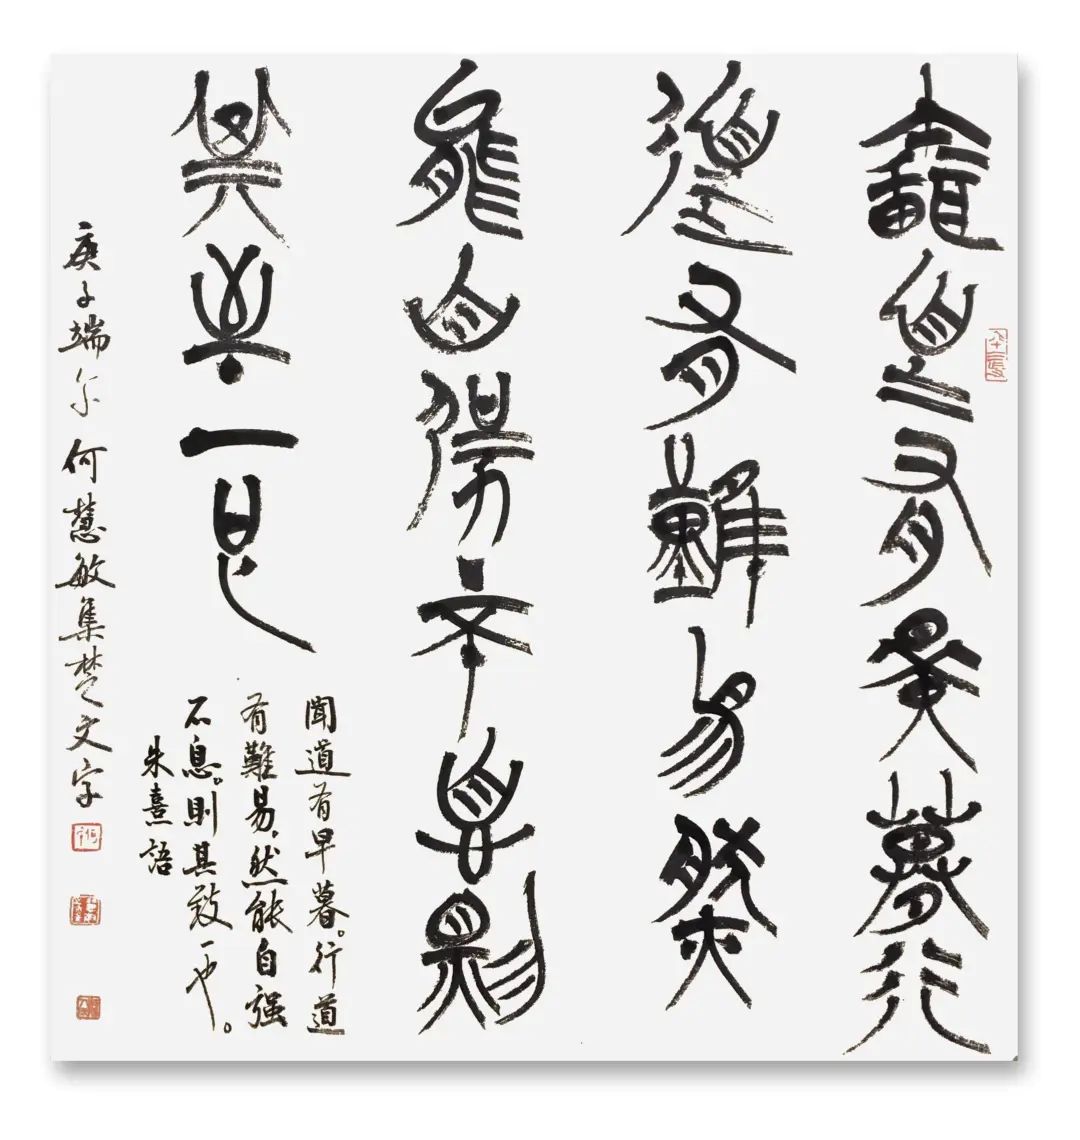 聞道有早暮行
道有難易然
能自強不息則
其致一也
聞道有早暮。行道
有難易，然能自强
不息。則其致一也。
朱熹語
庚子端午 何慧敏集楚文字